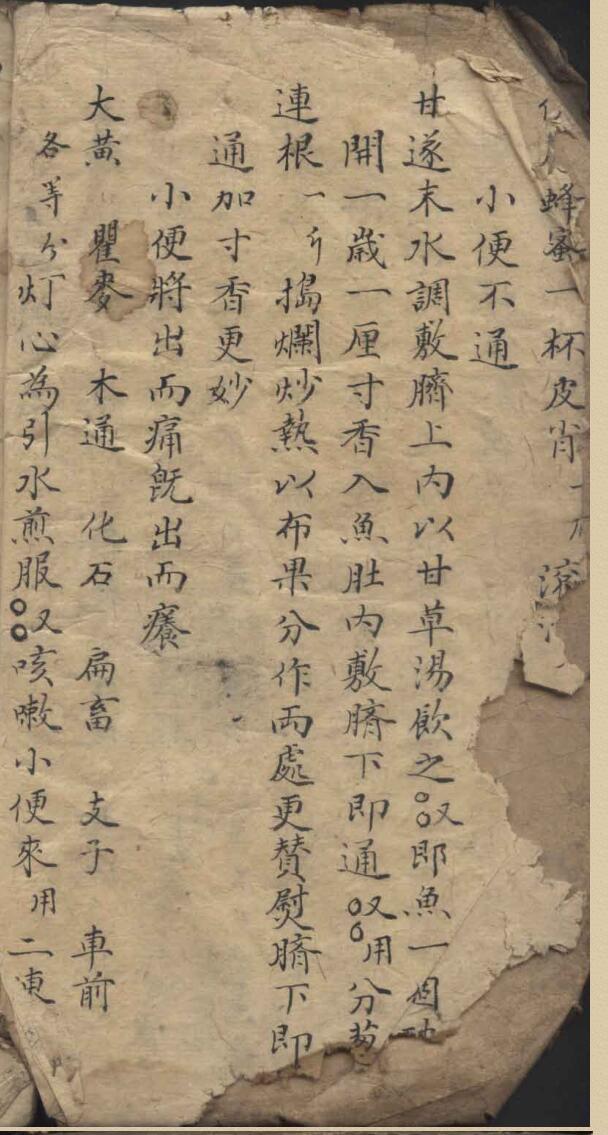 蜂蜜一杯皮肖一
小便不通
甘遂末水調敷臍上内以甘草湯飲之又即魚一個
開一歲一厘寸香入魚肚内敷臍下即通又用分葱
連根一斤搗爛炒熱以布果分作两處更贊熨臍下即
通加寸香更妙
小便將出而痛旣出而癢
大黃 瞿麥 木通 化石 扁畜 支子 車前
各等分灯心為引水煎服又咳嗽小便來用二陳